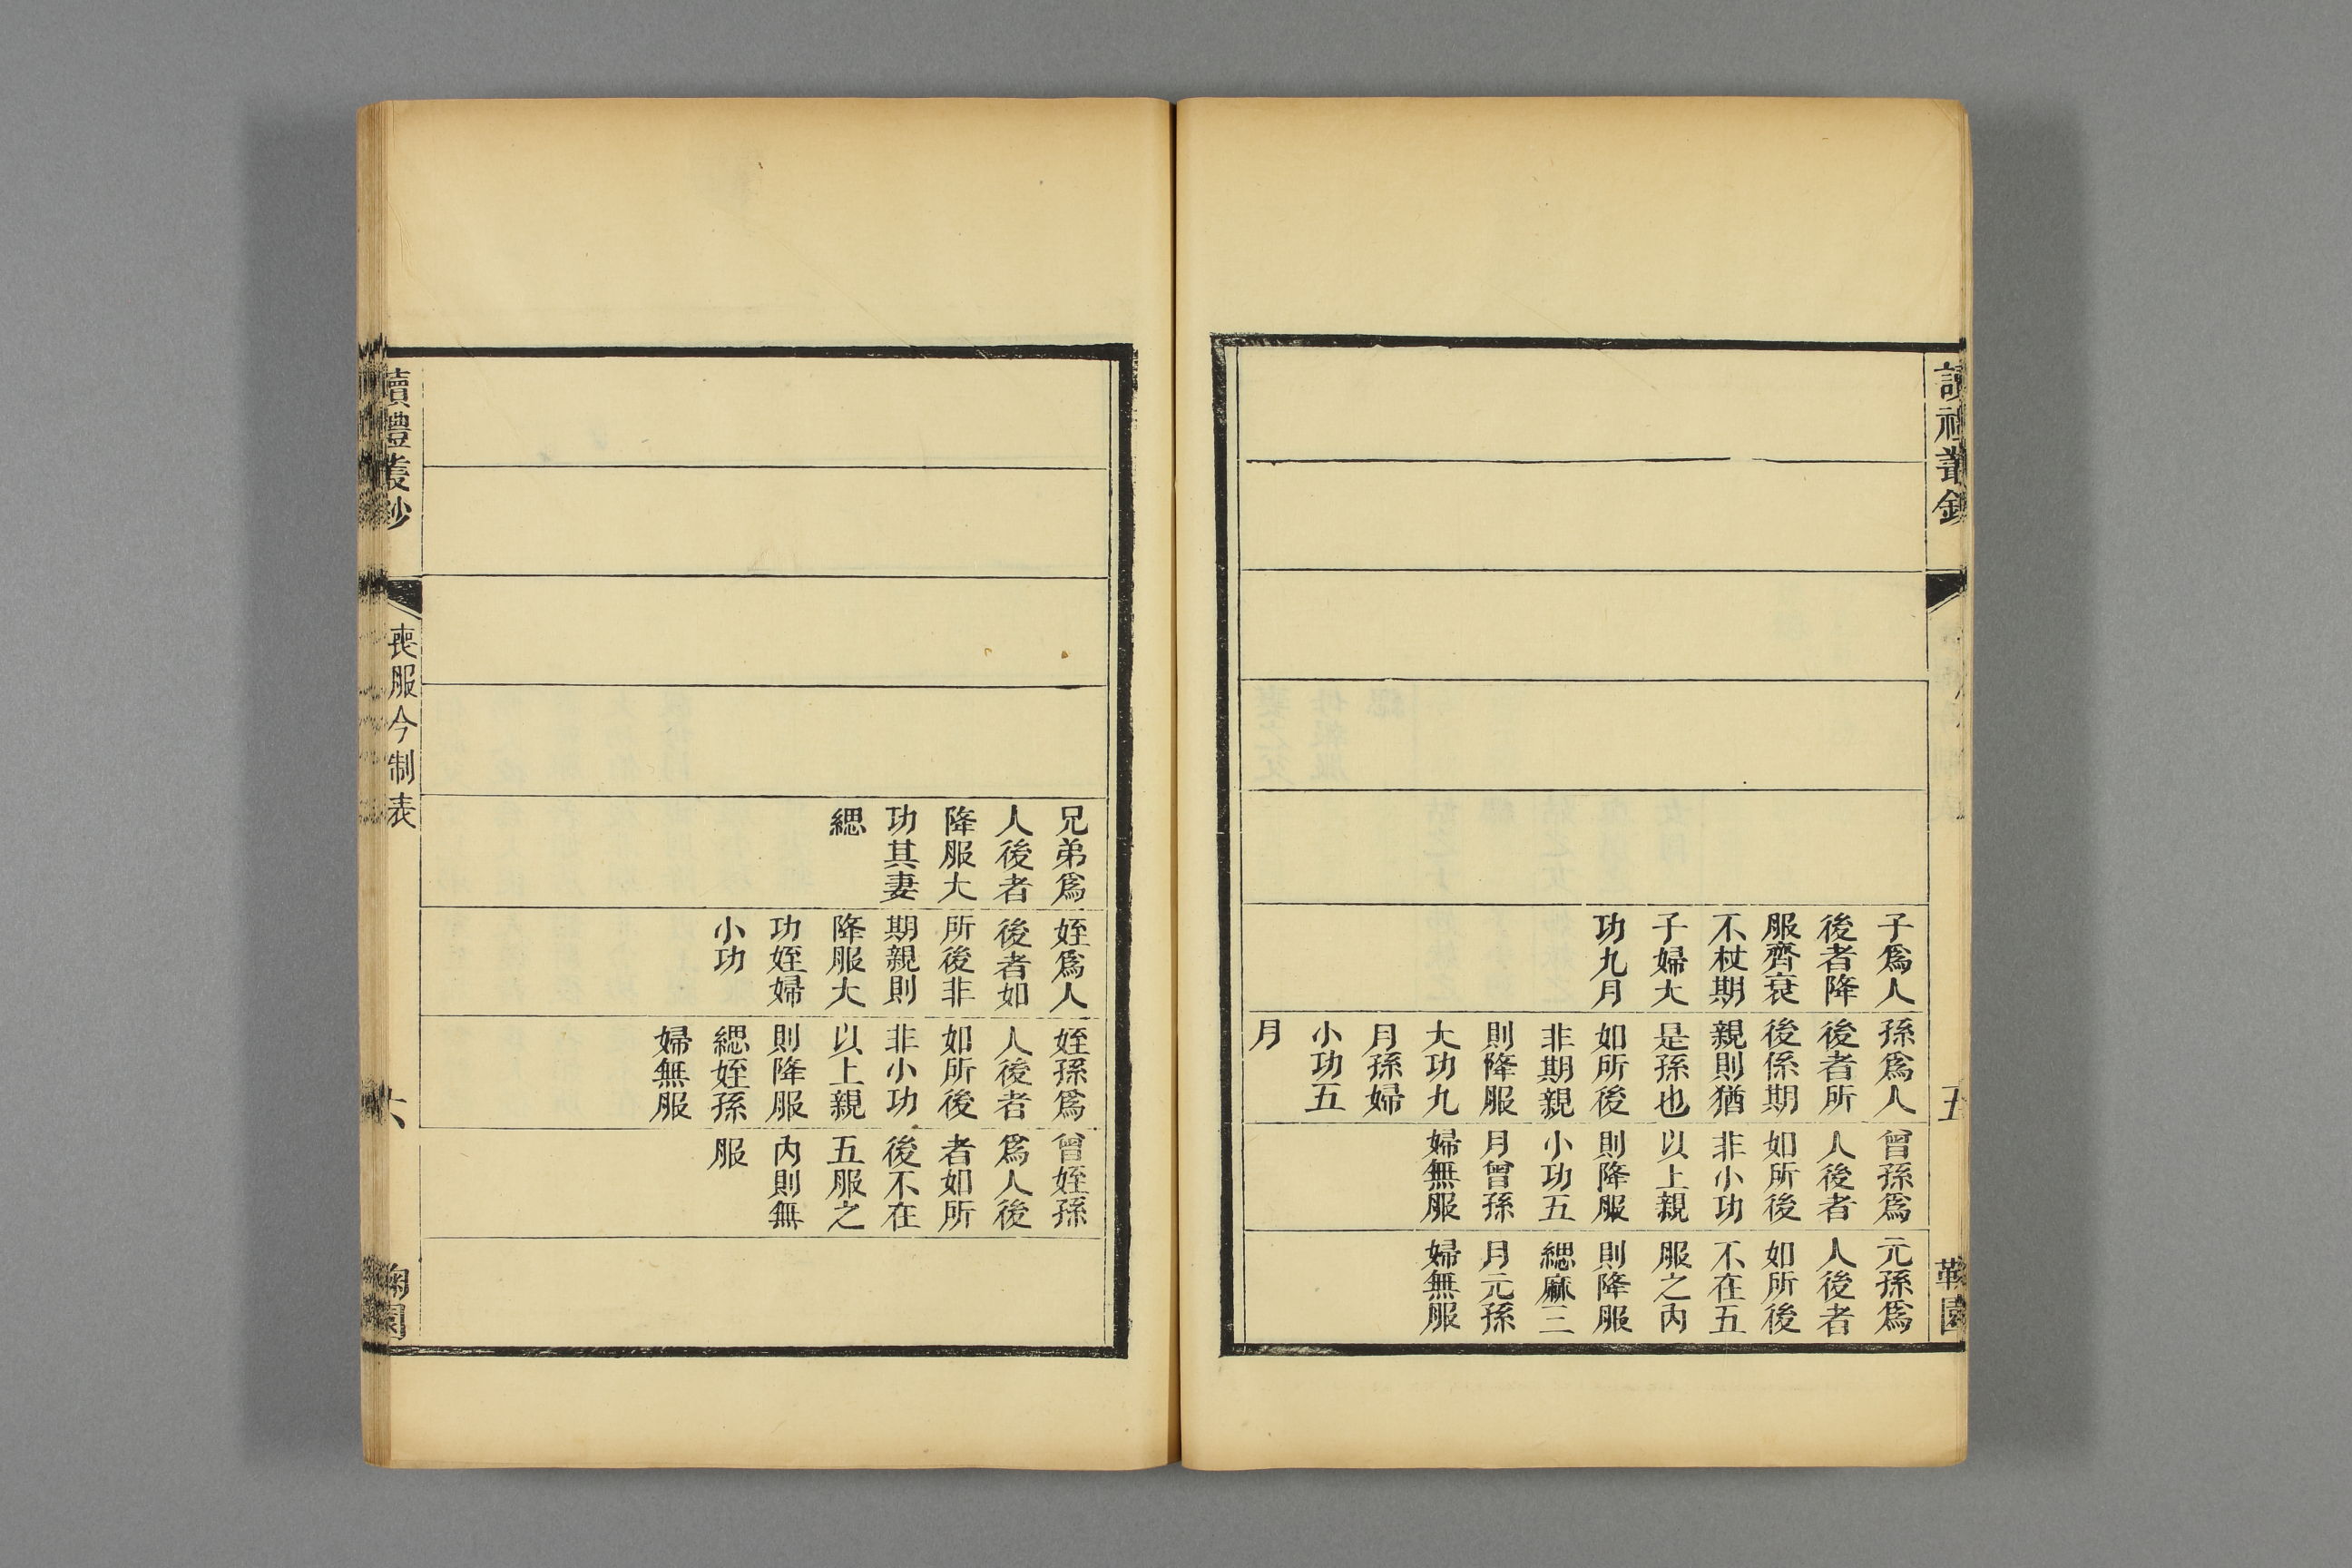 讀禮叢鈔
五
鞠園
子爲人
後者降
服齊衰
不杖期
子婦大
功九月
孫爲人
後者所
後係期
親則猶
是孫也
如所後
非期親
則降服
大功九
月孫婦
小功五
月
曾孫爲
人後者
如所後
非小功
以上親
則降服
小功五
月曾孫
婦無服
元孫爲
人後者
如所後
不在五
服之內
則降服
緦麻三
月元孫
婦無服
兄弟爲
人後者
降服大
功其妻
緦
姪爲人
後者如
所後非
期親則
降服大
功姪婦
小功
姪孫爲
人後者
如所後
非小功
以上親
則降服
緦姪孫
婦無服
曾姪孫
爲人後
者如所
後不在
五服之
內則無
服
讀禮叢鈔
喪服今制表
六
鞠園